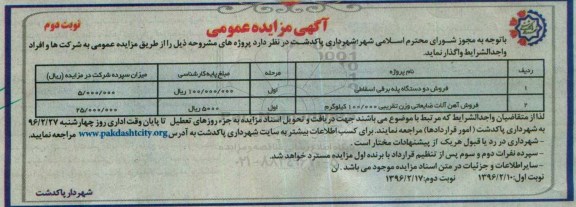 آگهی مزایده عمومی
نوبت دوم
باتوجه به مجوز شورای محترم اسلامی شهر؛شهرداری پاکدشت در نظر دارد پروژه های مشروحه ذیل را از طریق مزایده عمومی به شرکت ها و افراد
واجدالشرایط واگذار نماید.
ردیف نام پروژه مرحله مبلغ پایه کارشناسی میزان سپرده شرکت در مزایده (ریال)
۱ فروش دو دستگاه پله برقی اسقاطی اول ۱۰۰/۰۰۰/۰۰۰ ریال ۵/۰۰۰/۰۰۰
۲ فروش آهن آلات ضایعاتی وزن تقریبی ۱۰۰/۰۰۰ کیلوگرم اول ۵۰۰۰ ریال ۲۵/۰۰۰/۰۰۰
لذا از متقاضیان واجدالشرایط که مرتبط با موضوع می باشند جهت دریافت و تحویل اسناد مزایده به جزء روزهای تعطیل تا پایان وقت اداری روز چهارشنبه ۹۶/۲/۲۷
به شهرداری پاکدشت (امور قراردادها) مراجعه نمایند. برای کسب اطلاعات بیشتر به سایت شهرداری پاکدشت به آدرس www.pakdashtcity.org مراجعه نمایید.
- شهرداری در رد یا قبول هریک از پیشنهادات مختار است.
- سپرده نفرات دوم و سوم پس از تنظیم قرارداد با برنده اول مزایده مسترد خواهد شد.
- سایر اطلاعات و جزئیات در متن اسناد مزایده موجود می باشد.
نوبت اول: ۱۳۹۶/۲/۱۰ نوبت دوم: ۱۳۹۶/۲/۱۷
شهردار پاکدشت